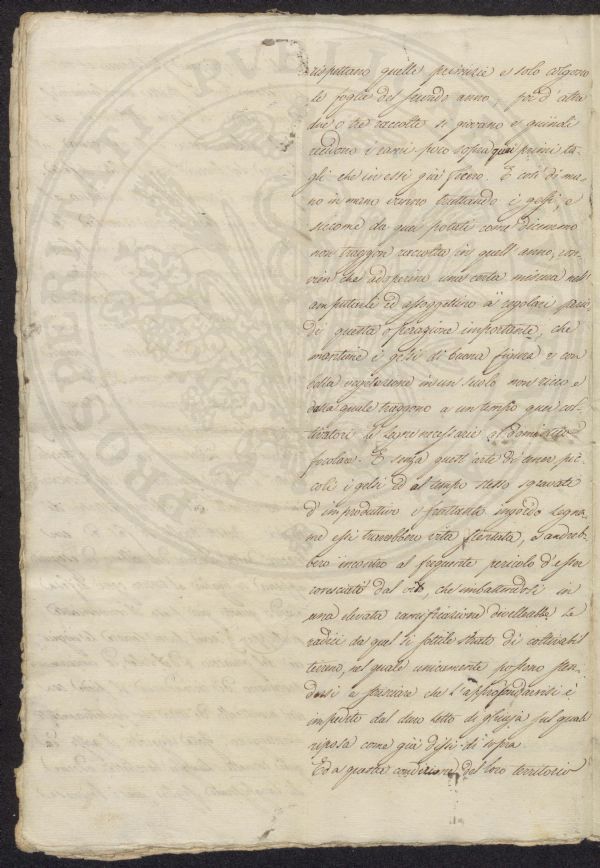 rispettano quelle primizie e solo colgono
le foglie del secondo anno, poi d'altre
due o tre raccolte si giovano e quindi
recidono i rami poco sopra quei primi ta-
gli che in essi già fecero. E così di ma-
no in mano vanno trattando i gelsi, e
siccome da quei potati come dicemmo
non traggon raccolta in quell'anno, con-
vien che adoperino una certa misura nell'
amputarli ed assoggettino a regolari perio-
di questa operazione importante, che
mantiene i gelsi di buona figura e con
bella vegetazione in un suolo non ricco e
dalla quale traggono a un tempo quei col-
tivatori le legna necessarie al domestico
focolare. E senza quest'arte di tener pic-
coli i gelsi ed al tempo stesso sgravati
d'improduttivo e frattanto ingordo legna-
me essi turrebber vita stentata, e andreb-
bero incontro al frequente pericolo d'esser
rovesciati dal che imbattendosi in
una elevata ramificazione divellerebbe le
radici da quel sì sottile strato di coltivabil
terreno, nel quale unicamente possono sten-
dersi e strisciare che l'approfondarvisi è
impedito dal duro letto di ghiaja sul quale
riposa come già dissi di sopra.
Ed a questa condizione del loro territorio
PVBLI